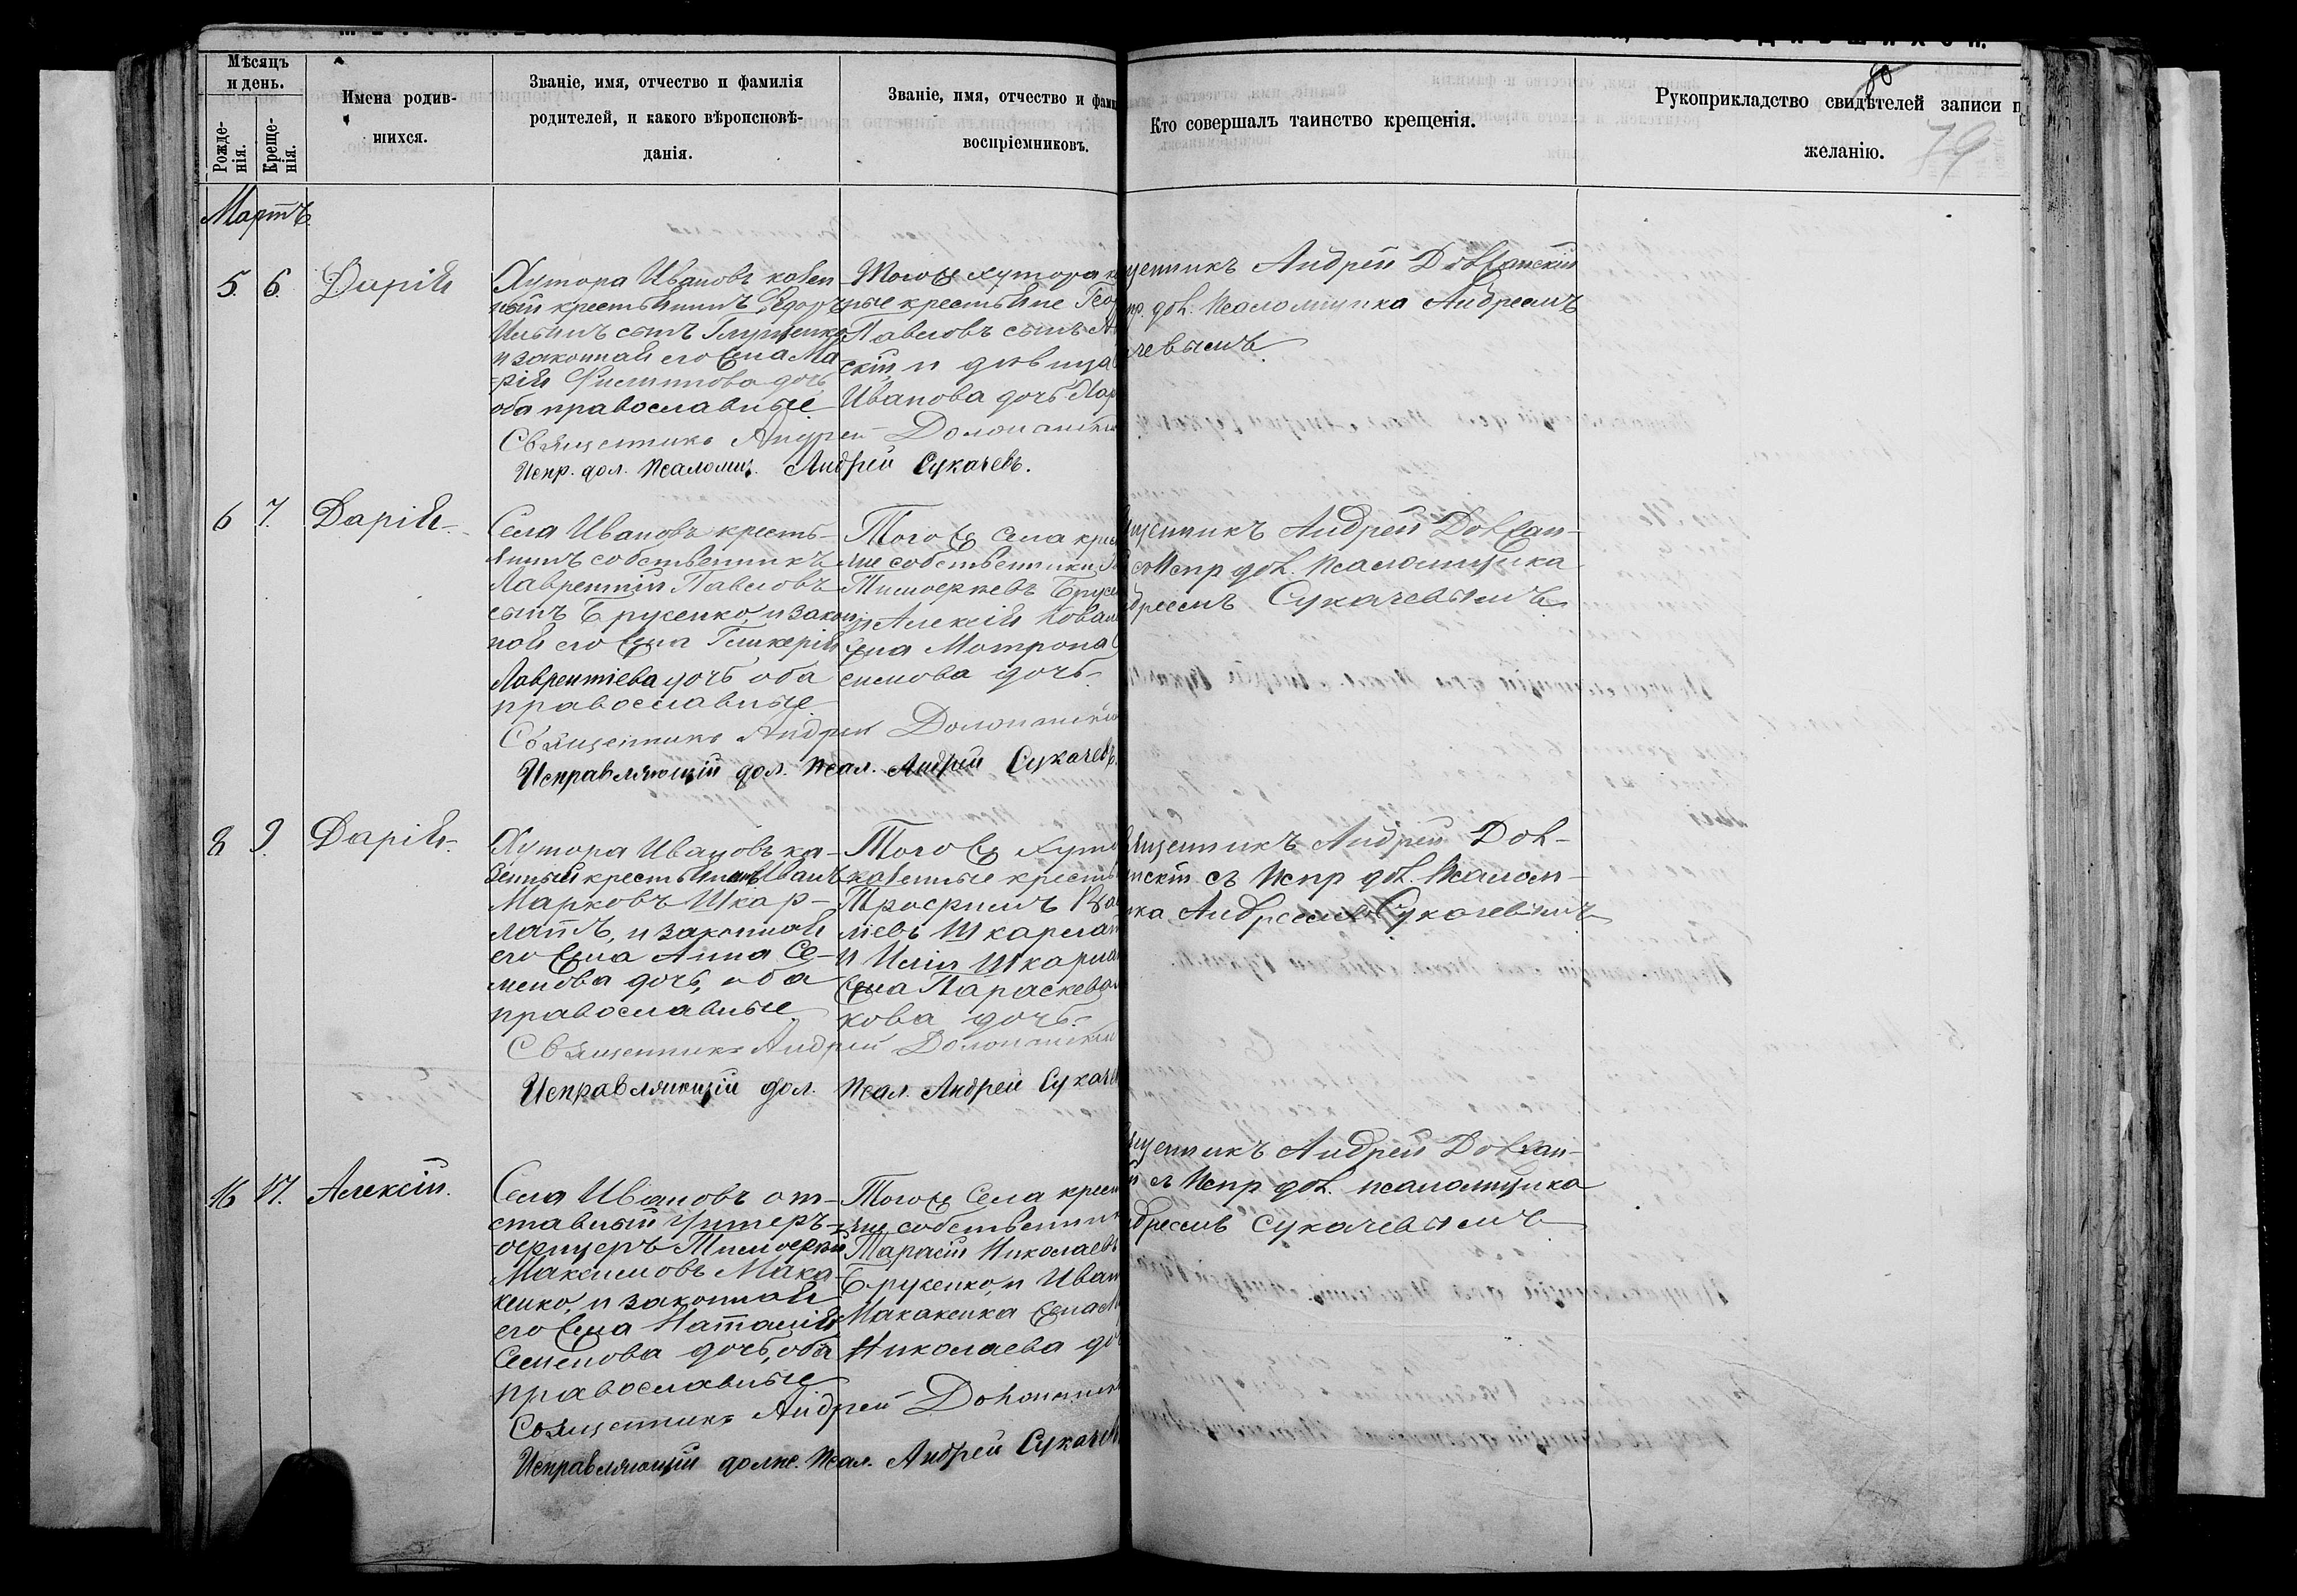 Мѣсяцъ
и день.
Рожде-
нія.
Креще-
нія.
Имена родив-
шихся.
Званіе, имя, отчество и фамилія
родителей, и какого вѣроисповѣ-
данія.
Званіе, имя, отчество и фами
воспріемниковъ.
Кто совершалъ таинство крещенія.
Рукоприкладство свидѣтелей записи п
желанію.
80
79
Мартъ
5. 6. Дарія
Хутора Ивановъ казен
ный крестьянинъ Ѳедоръ
Ильинъ сынъ Глущенко
и законная его жена Ма
рія Филиппова дочь
оба православные
Тогоже хутора ка
ные крестьяне Геор
Павловъ сынъ
скій и дѣвица
Иванова дочь
щенникъ Андрей Должанскій
пр. дол. псаломщика Андреемъ
чевымъ
Священникъ Андрей Должанскій
Испр. дол. псаломщ. Андрей Сукачевъ.
6 7. Дарія
Села Ивановъ кресть-
янинъ собственникъ
Лаврентій Павловъ
сынъ Брусенко, и закон
ная его жена Гликерія
Лаврентіева дочь, оба
православные
Тогоже Села крес
яне собственники
Тимоѳеевъ Брусе
и Алексія Ковал
жена Мотрона
симова дочь
щенникъ Андрей Должан-
со Испр дол. псаломщика
дреемъ Сукачевымъ
Священникъ Андрей Должанскій
Исправляющій дол. псал. Андрей Сукачевъ.
8 9. Дарія
Хутора Ивановъ ка-
зенный крестьянинъ Иванъ
Марковъ Шкар-
латъ, и законная
его жена Анна Се-
менова дочь, оба
православные
Тогоже Хуто
казенные кресть
Трофимъ
ліевъ Шкарлат
и Иліи Шкарла
жена Параскева
кова дочь
ященникъ Андрей Дол-
нскій съ Испр дол. псалом-
ика Андреемъ Сукачевымъ
Священникъ Андрей Должанскій
Исправляющій дол. псал. Андрей Сукаче
16 17. Алексій.
Села Ивановъ от-
ставный унтеръ-
офицеръ Тимоѳей
Максимовъ Мака-
кенко, и законная
его жена Наталія
Семенова дочь, оба
православные
Тогоже Села крест
яне собственник
Тарасій Николаевъ
Брусенко, и Иван
Макакенка жена М
Николаева до
ященникъ Андрей Должан-
й съ Испр дол. псаломщика
дреемъ Сукачевымъ
Священникъ Андрей Должанскій
Исправляющій долж. псал. Андрей Сукачев